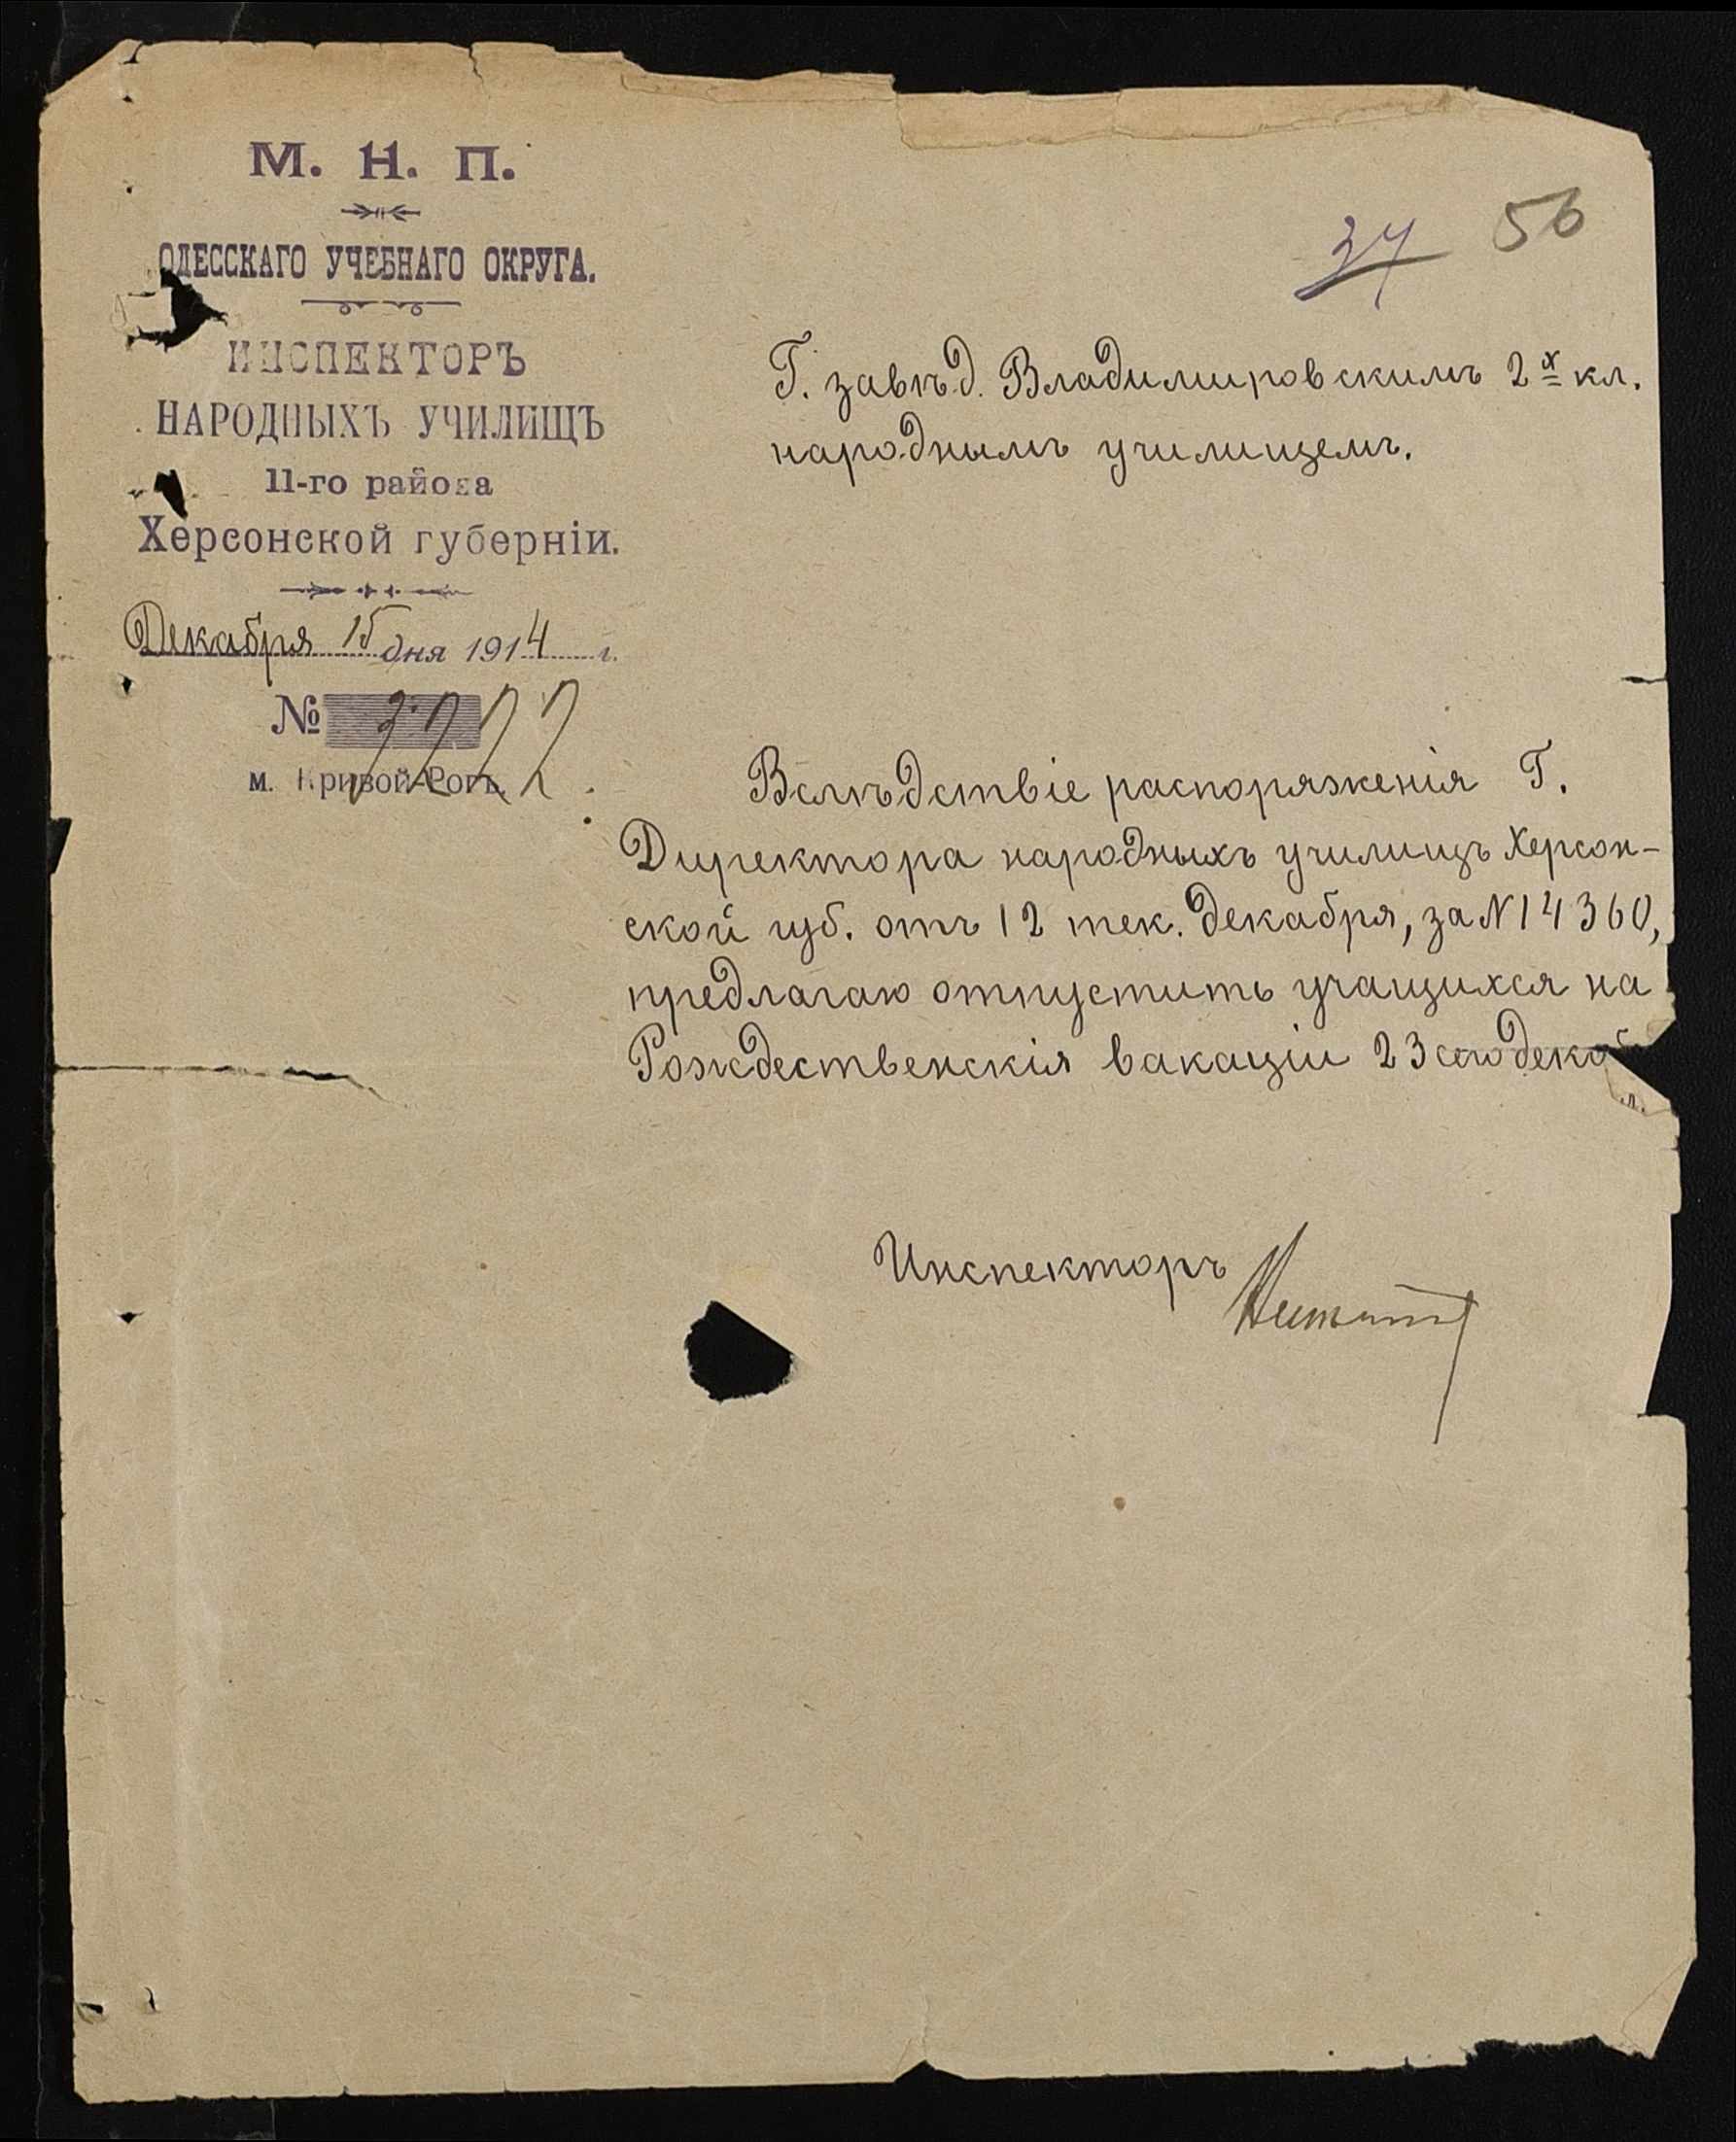 М. Н. П.
ОДЕССКАГО УЧЕБНАГО ОКРУГА.
ИНСПЕКТОРЪ
НАРОДНЫХЪ УЧИЛИЩЪ
11-го района
Херсонской губерніи.
Декабря 15 дня 1914 г.
№ 3777
м. Кривой-Рогъ.
37 56
Г. завѣд. Владимировскимъ 2х кл.
народнымъ училищемъ.
Вслѣдствіе распоряженія Г.
Директора народныхъ училищъ Херсон-
ской губ. отъ 12 тек. декабря, за N 14360,
предлагаю отпустить учащихся на
Рождественскія вакаціи 23 сего декаб
Инспекторъ